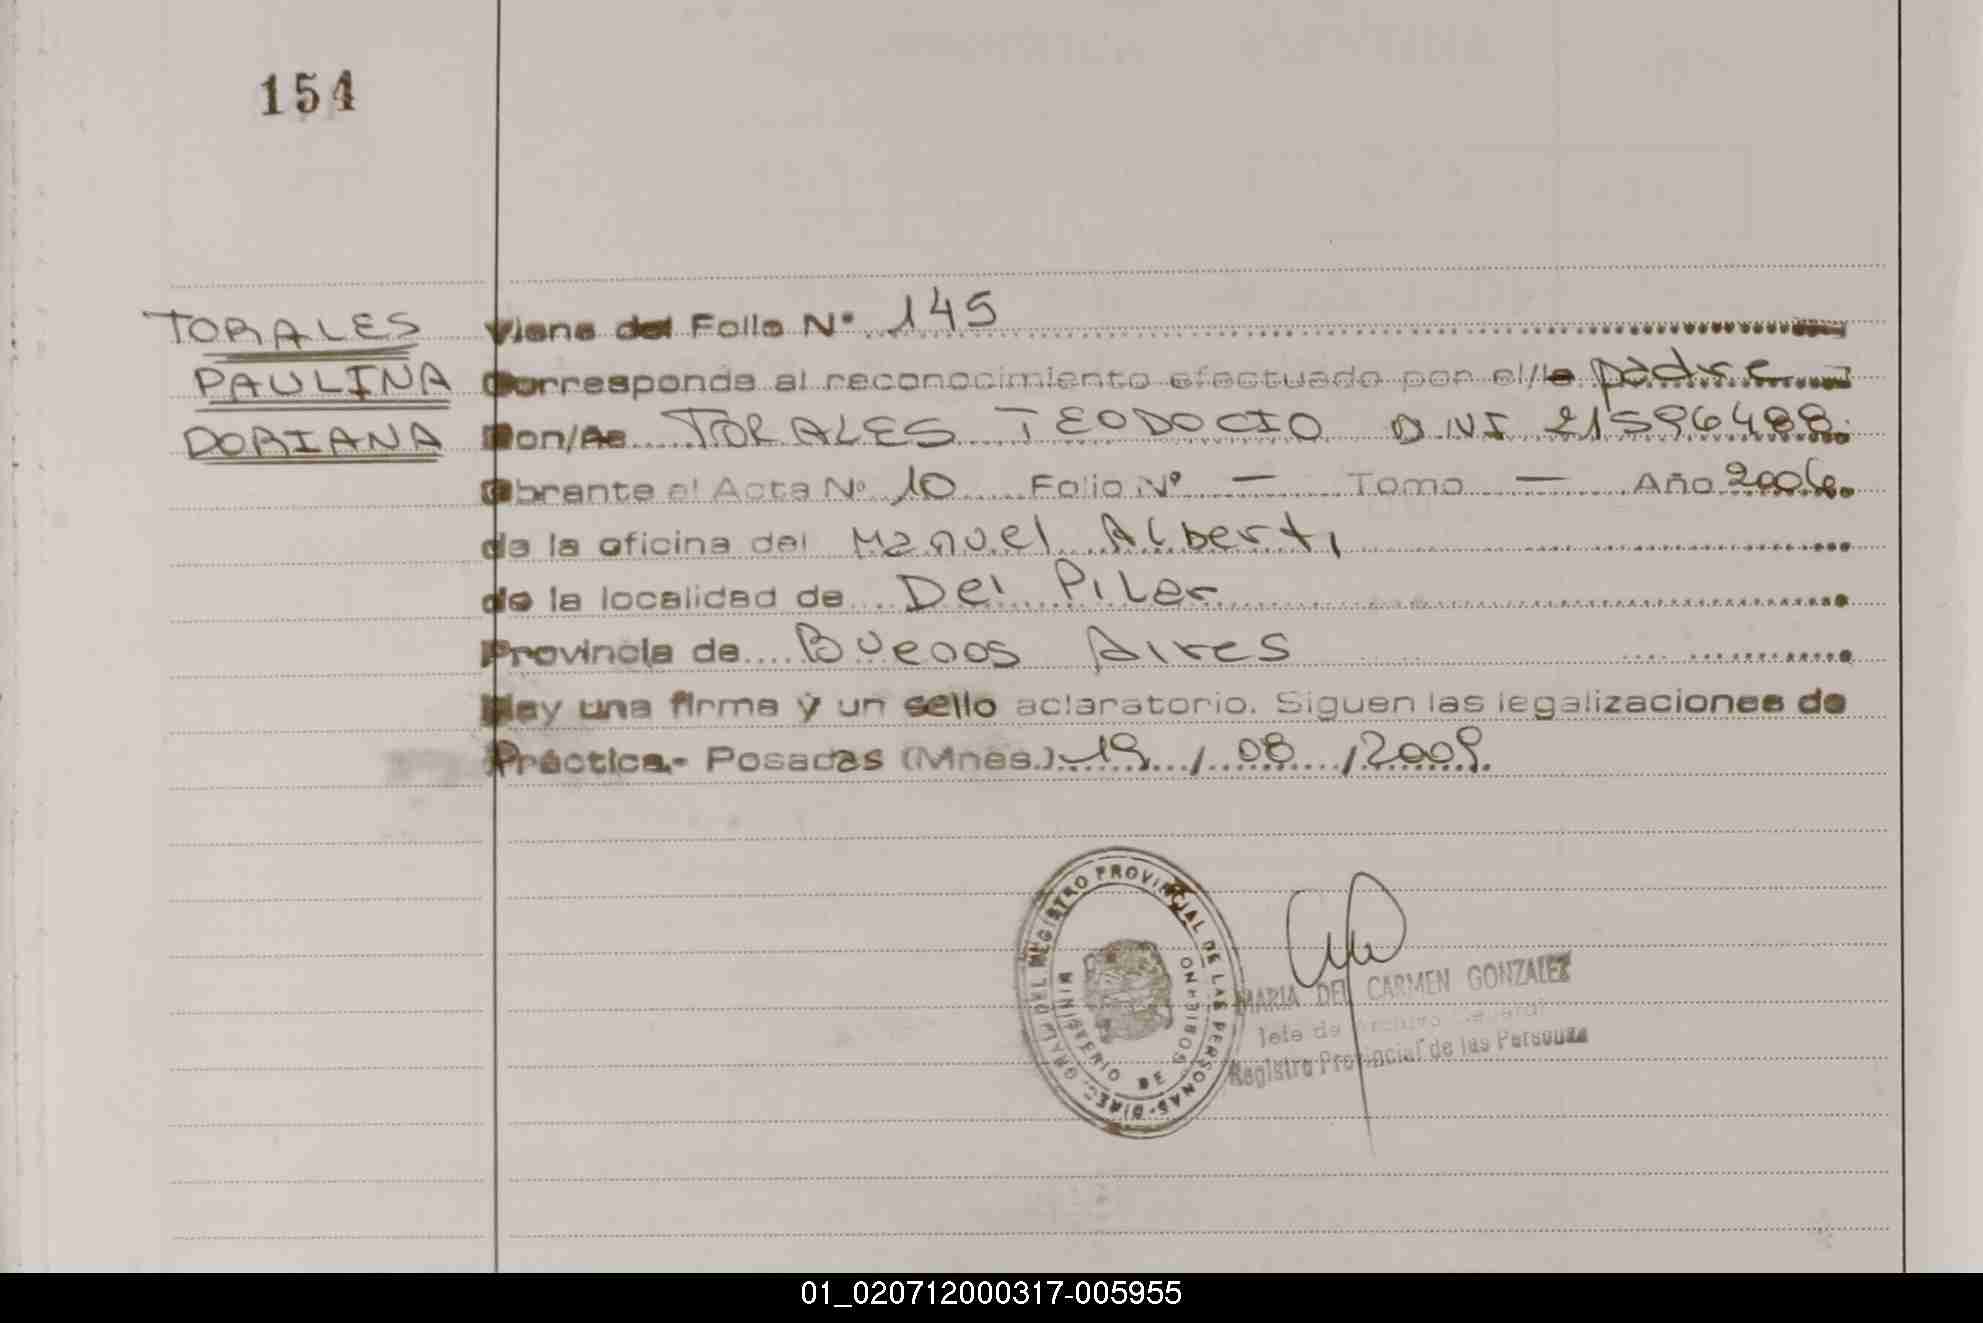 154
TORALES
PAULINA
DORIANA
Viene del Folio N° 145
Corresponde al reconocimiento efectuado por el/la padre
Don/ña TORALES TEODOCIO DNI 21596488
Obrante al Acta N° 10 Folio N° — Tomo — Año 2006
de la oficina del Manuel Alberti
de la localidad de Del Pilar
Provincia de Buenos Aires
Hay una firma y un sello aclaratorio. Siguen las legalizaciones de
Práctica.- Posadas (Mnes.) 19 / 08 / 2009.
REGISTRO PROVINCIAL DE LAS PERSONAS-DIREC. GRAL. DEL
MINISTERIO DE GOBIERNO
MARIA DEL CARMEN GONZALEZ
Jefe de Archivo General
Registro Provincial de las Personas
01_020712000317-005955